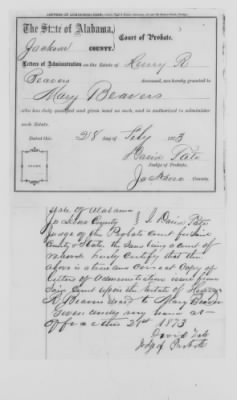 The State of Alabama,
Court of Probate.
Jackson
COUNTY.
Letters of Administration on the Estate of Henry R
Beavers deceased, are hereby granted to
Mary Beavers
who has duly qualified and given bond as such, and is authorized to administer
such Estate.
Dated this 28 day of July 1873
David Tate
Judge of Probate.
Jackson County.
State of Alabama
Jackson County I David Tate
Judge of the Probate Court for said
County & State, the same being a court of
record hereby certify that the
above is a true and correct Copy of
letters of Administration issued from
said Court upon the Estate of Henry
R Beavers to Mary Beavers
Given under my hand at
office this 28th 1873
David Tate
Judge of Probate